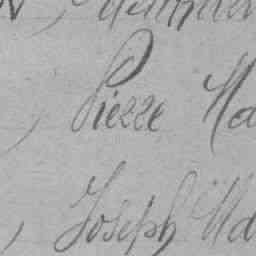 Pierre Ma
, Joseph Ma